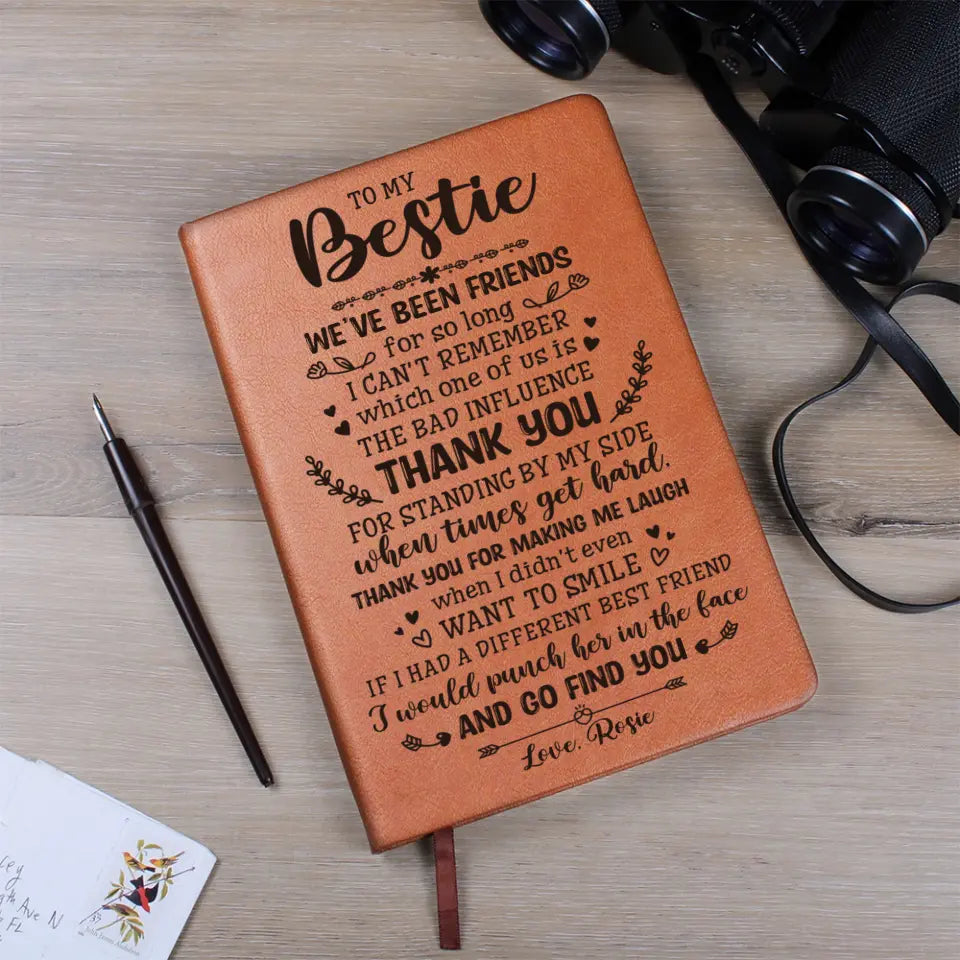 TO MY
Bestie
WE'VE BEEN FRIENDS
for so long
I CAN'T REMEMBER
which one of us is
THE BAD INFLUENCE
THANK YOU
FOR STANDING BY MY SIDE
when times get hard.
THANK YOU FOR MAKING ME LAUGH
when I didn't even
WANT TO SMILE
IF I HAD A DIFFERENT BEST FRIEND
I would punch her in the face
AND GO FIND YOU
Love, Rosie
Ave N
FL
37